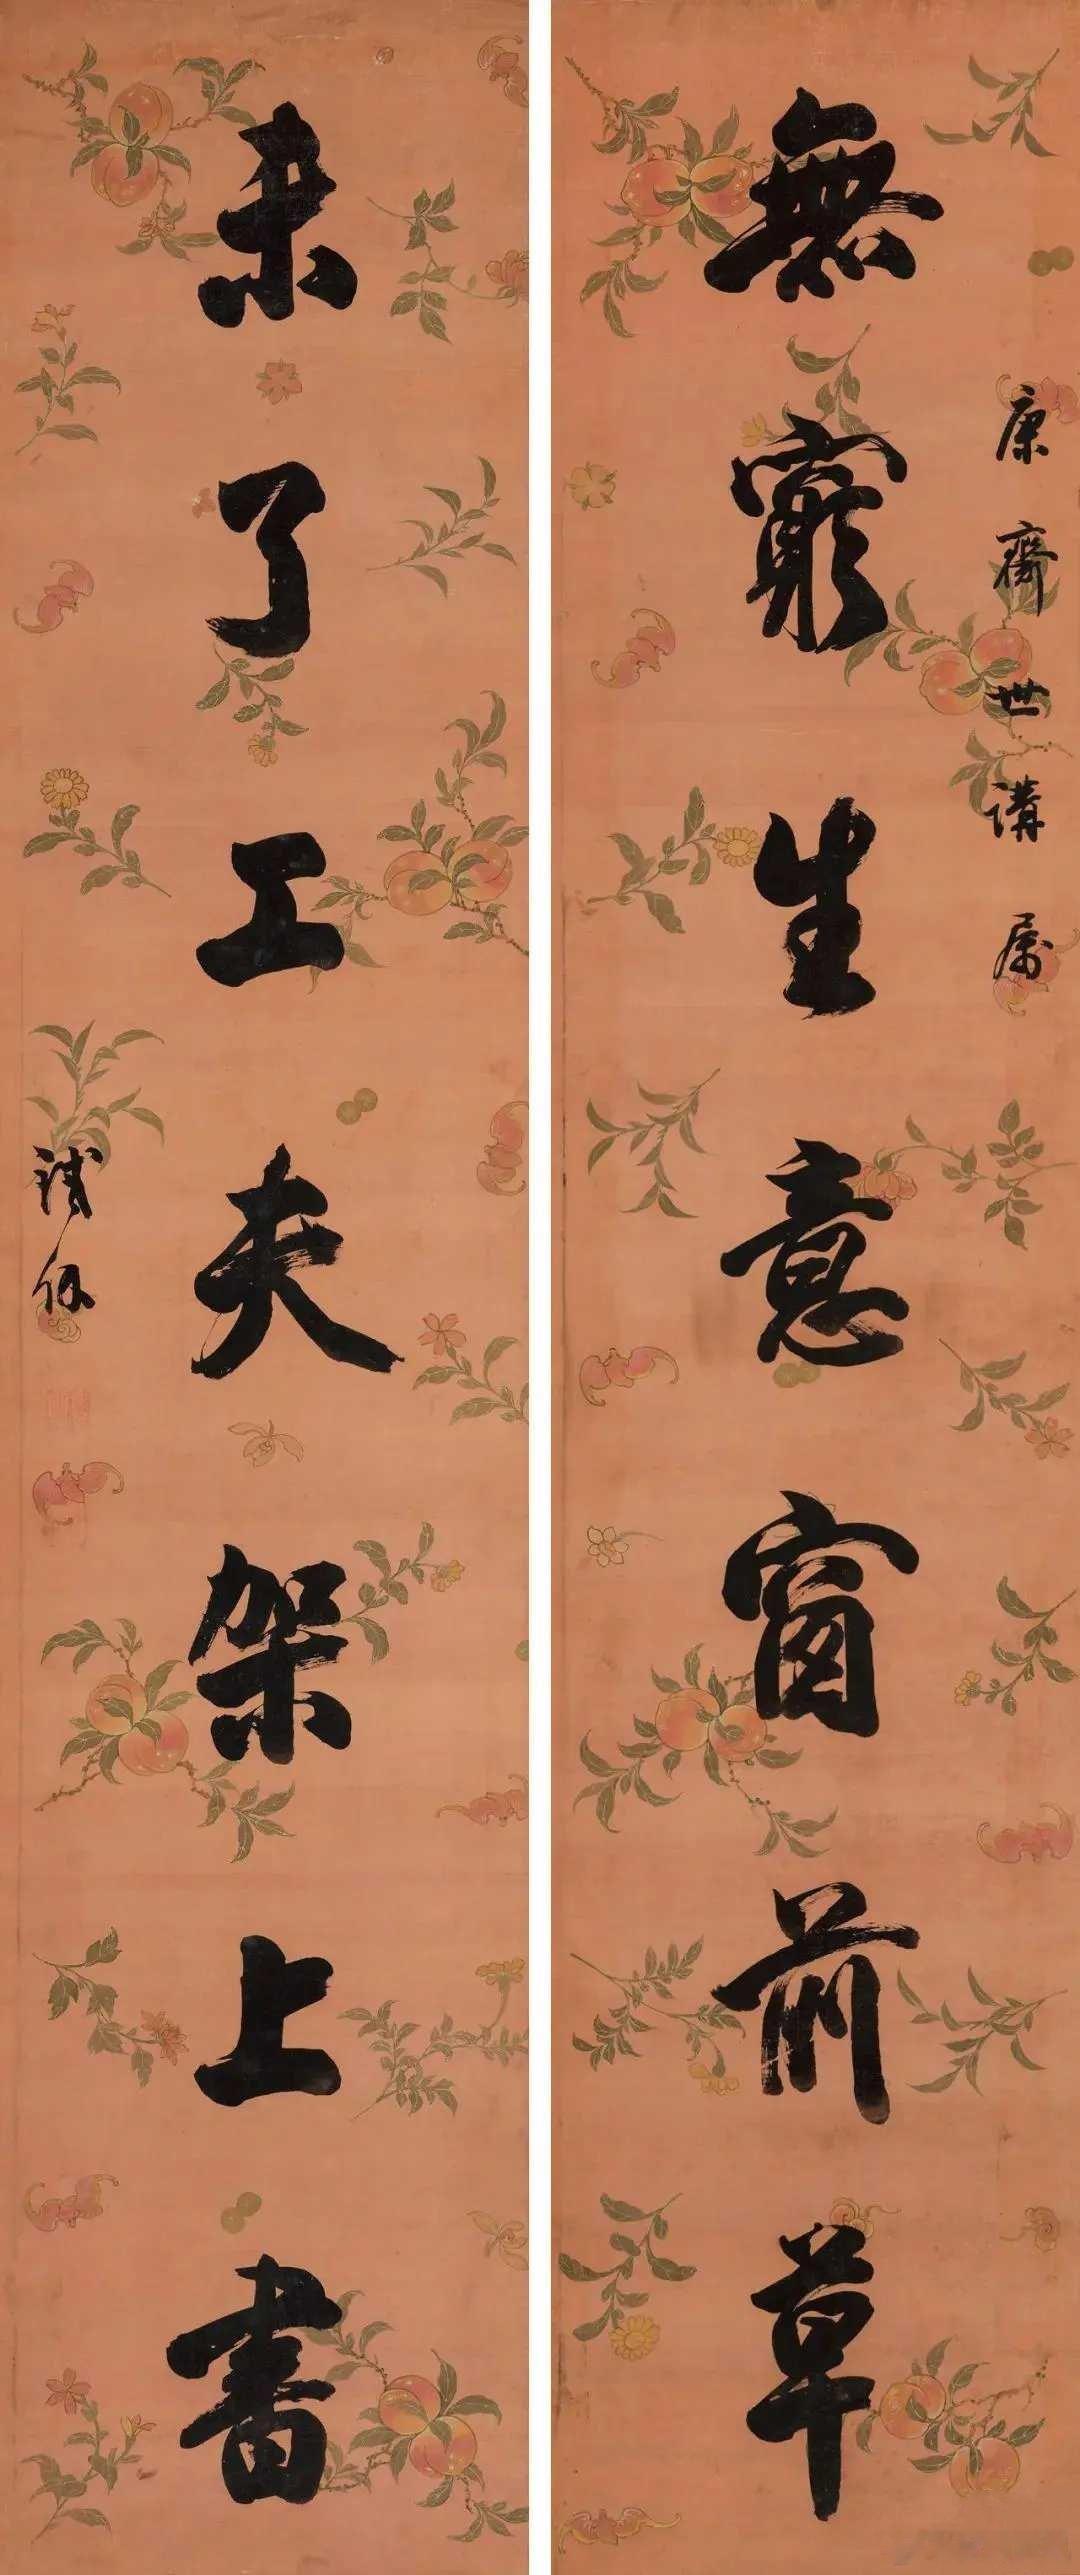 康齋世講屬
無窮生意窗前草
未了工夫架上書